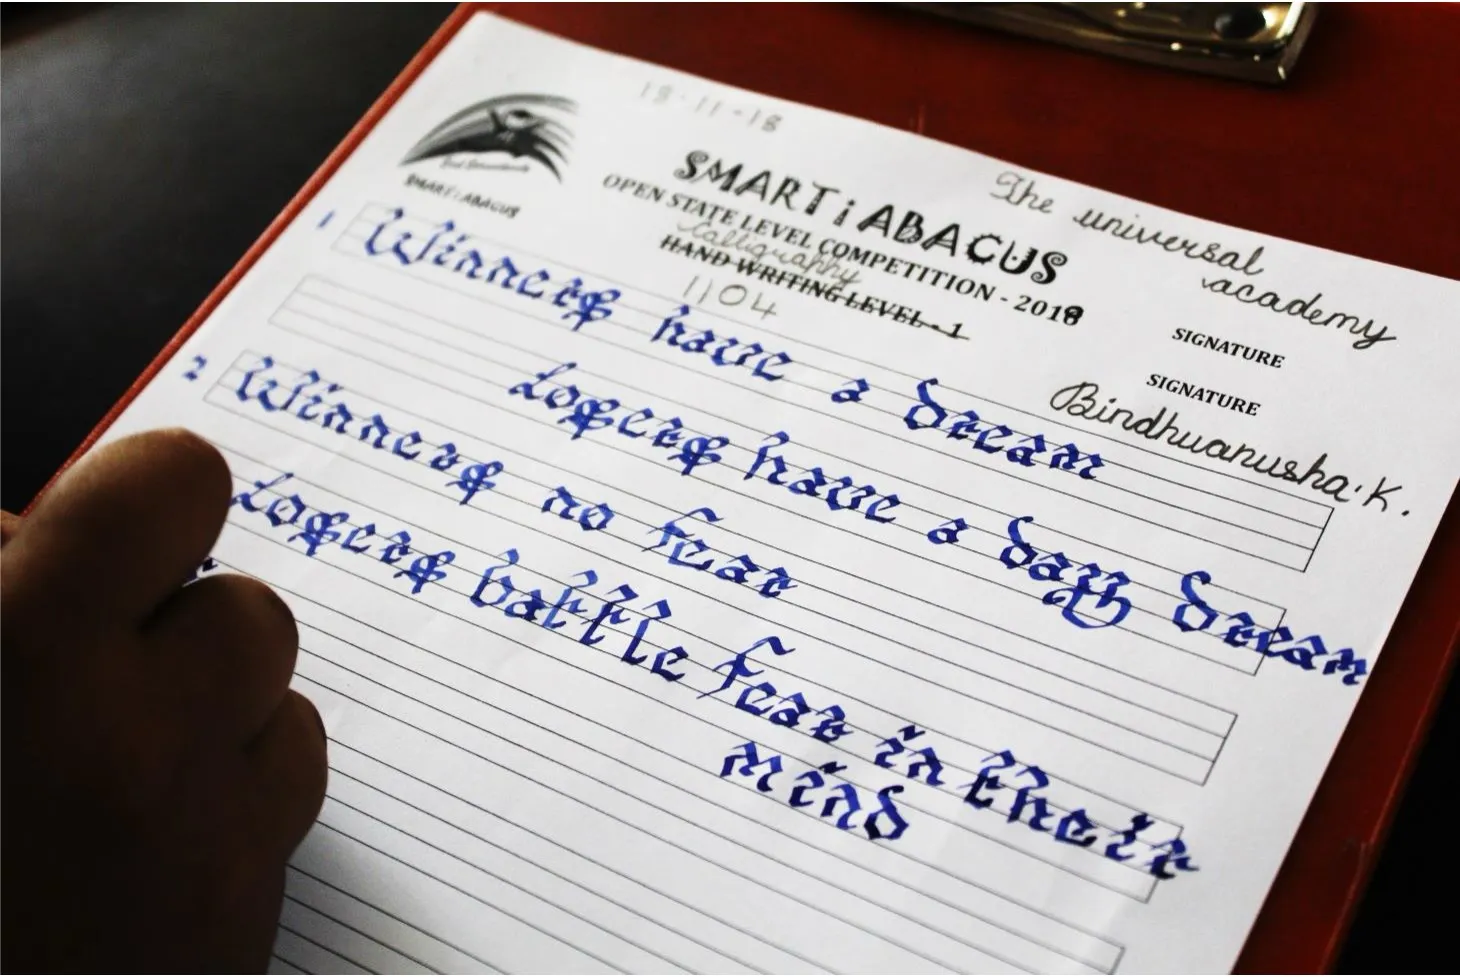 18-11-18
The universal
academy
SMART i ABACUS
SMART i ABACUS
OPEN STATE LEVEL COMPETITION - 2018
Calligraphy
HAND WRITING LEVEL - 1
1104
SIGNATURE
SIGNATURE
Bindhuanusha.K.
1 Winners have a dream
Losers have a day dream
2 Winners no fear
Losers battle fear in their
mind